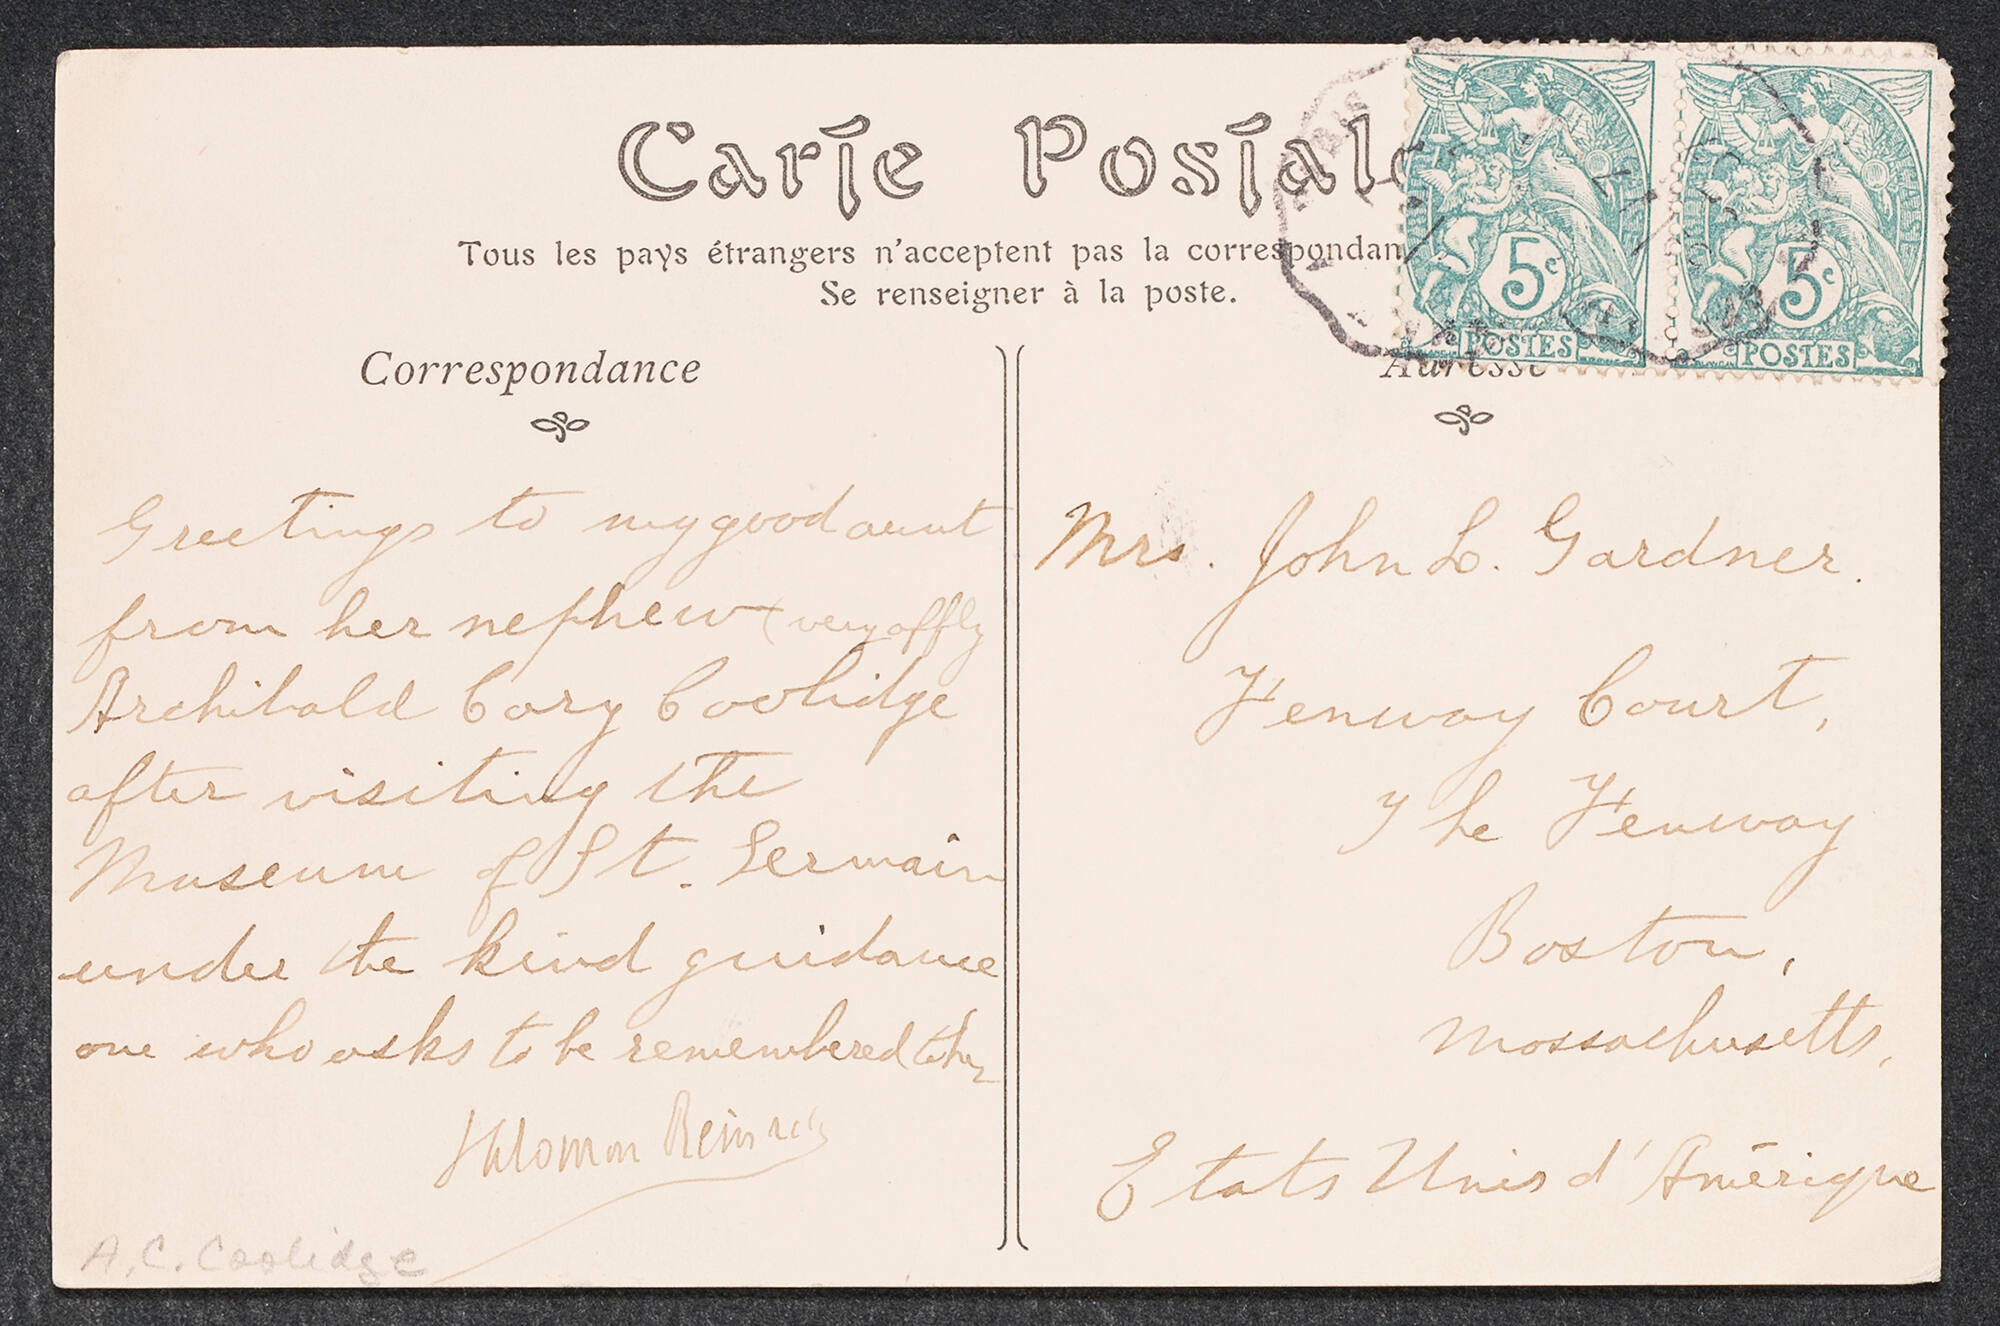 Carte Postale
Tous les pays étrangers n'acceptent pas la correspondan
Se renseigner à la poste.
Correspondance
Greetings to my good aunt
from her nephew (very affly
Archibald Cary Coolidge
after visiting the
Museum of St. Germain
under the kind guidance
one who asks to be remembered to her
Salomon Reinach
A. C. Coolidge
5c
POSTES
5c
POSTES
Adresse
Mrs. John L. Gardner.
Fenway Court,
The Fenway
Boston,
Massachusetts,
Etats Unis d'Amérique